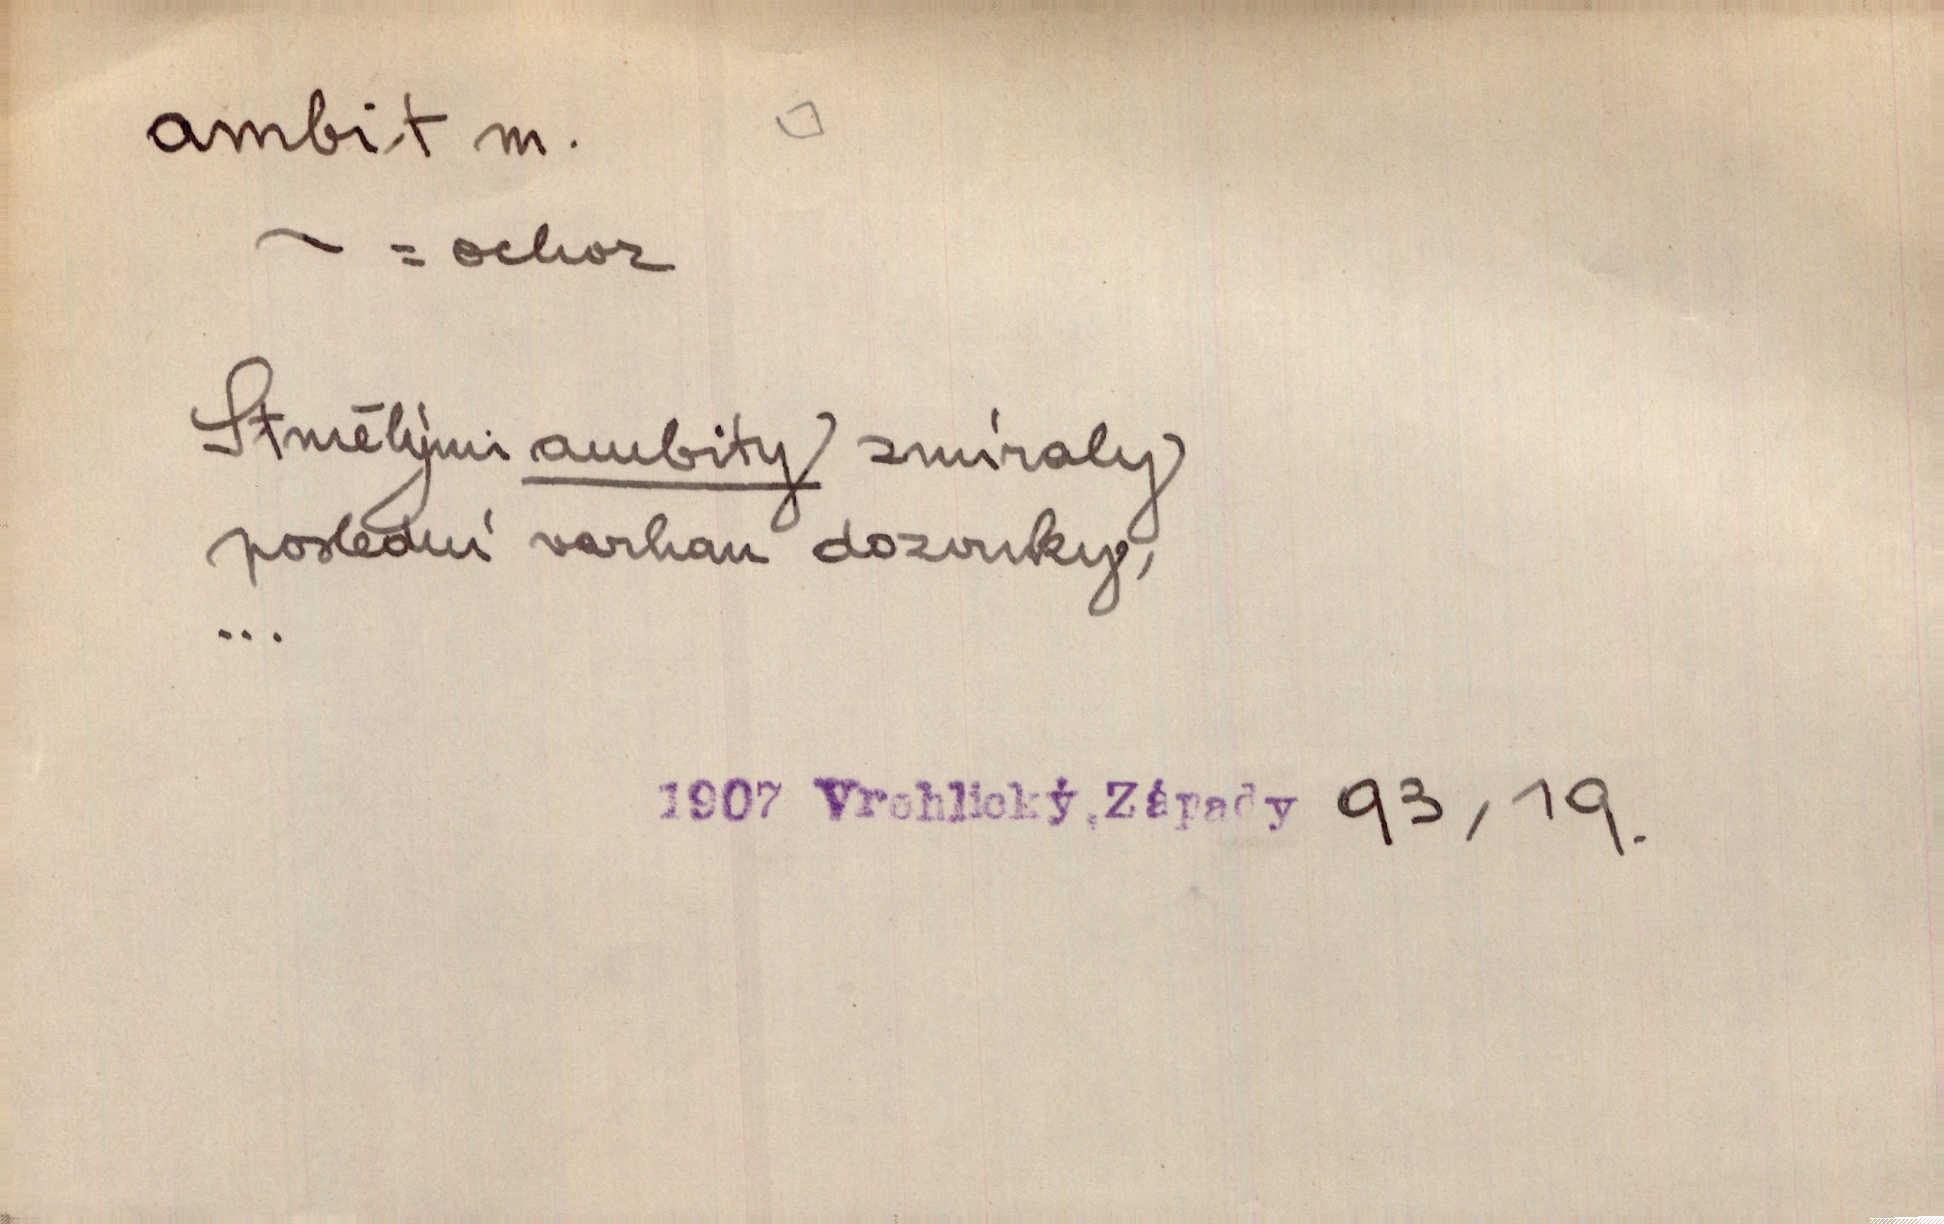 ambit m.
~ = ochoz
Stmělými ambity zmíraly
poslední varhan dozvuky,
...
1907 Vrchlický, Západy 93, 19.